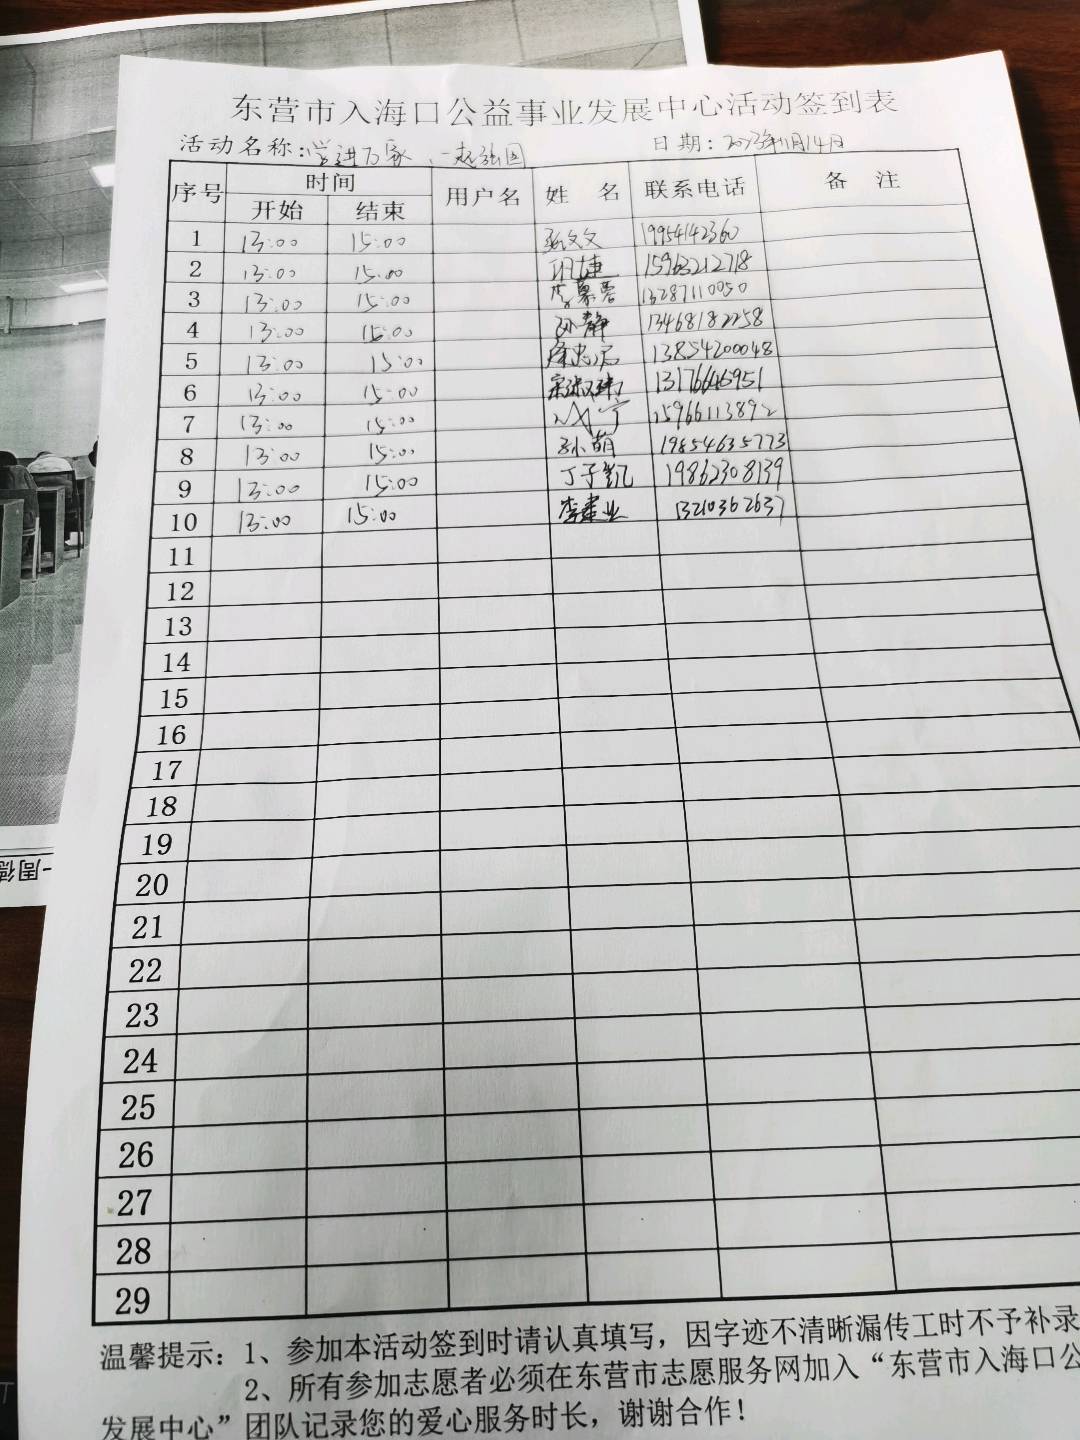 东营市入海口公益事业发展中心活动签到表
活动名称：学进万家 日期：2023年11月14日
序号 时间 用户名 姓 名 联系电话 备 注
开始 结束
1 13:00 15:00 19954142360
2 13:00 15:00 15963212718
3 13:00 15:00 李慕蓉 13287110050
4 13:00 15:00 孙静 13468182258
5 13:00 15:00 13854200048
6 13:00 15:00 13176646951
7 13:00 15:00 15966113892
8 13:00 15:00 孙萌 19854635773
9 13:00 15:00 丁子凯 19862308139
10 13:00 15:00 李建业 13210362637
11
12
13
14
15
16
17
18
19
20
21
22
23
24
25
26
27
28
29
温馨提示：1、参加本活动签到时请认真填写，因字迹不清晰漏传工时不予补录
2、所有参加志愿者必须在东营市志愿服务网加入“东营市入海口公
发展中心”团队记录您的爱心服务时长，谢谢合作！
-周德